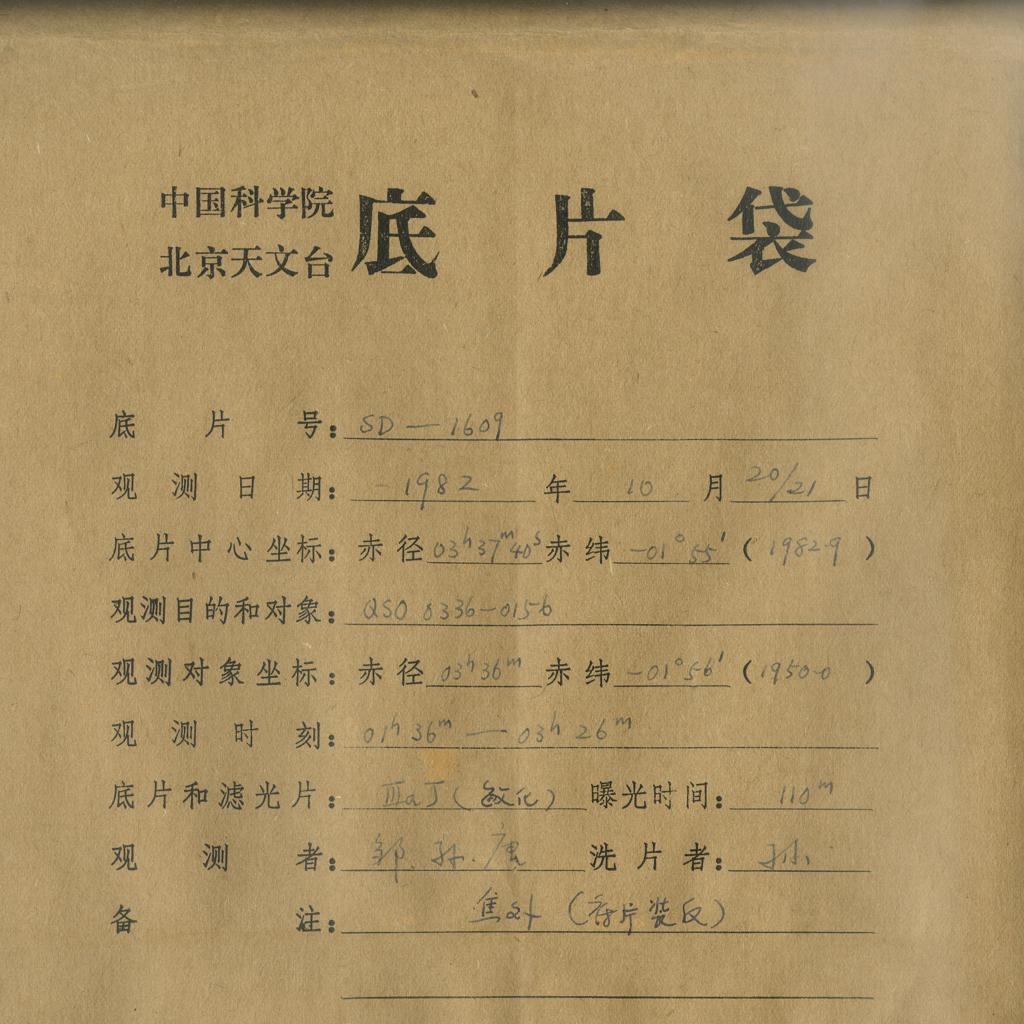 中国科学院
北京天文台
底片袋
底片号：SD—1609
观测日期：1982年10月20/21日
底片中心坐标：赤径03h37m40s赤纬-01°55′(1982.9)
观测目的和对象：QSO 0336-0156
观测对象坐标：赤径03h36m赤纬-01°56′(1950.0)
观测时刻：01h36m—03h26m
底片和滤光片：ⅢaJ(敏化)曝光时间：110m
观测者：邹.孙.唐洗片者：孙
备注：焦外(存片装反)